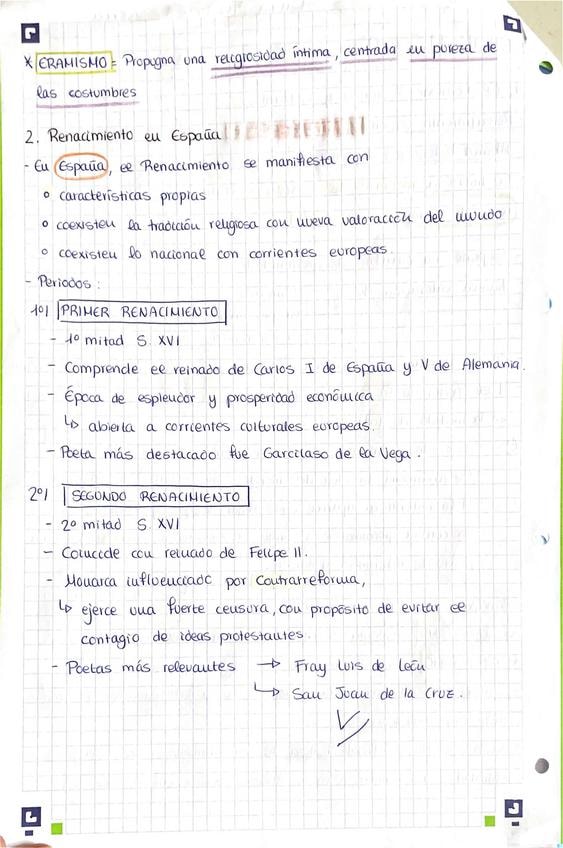 * ERAMISMO = Propugna una religiosidad íntima, centrada en pureza de
las costumbres
2. Renacimiento en España
- En España, el Renacimiento se manifiesta con
o características propias
o coexisten la tradición religiosa con nueva valoración del mundo
o coexisten lo nacional con corrientes europeas.
- Periodos:
1º/ PRIMER RENACIMIENTO
- 1º mitad S. XVI
- Comprende el reinado de Carlos I de España y V de Alemania.
- Época de esplendor y prosperidad económica
↳ abierta a corrientes culturales europeas.
- Poeta más destacado fue Garcilaso de la Vega.
2º/ SEGUNDO RENACIMIENTO
- 2º mitad S. XVI
- Coincide con reinado de Felipe II.
- Monarca influenciado por Contrarreforma,
↳ ejerce una fuerte censura, con propósito de evitar el
contagio de ideas protestantes.
- Poetas más relevantes → Fray Luis de León
↳ San Juan de la Cruz.